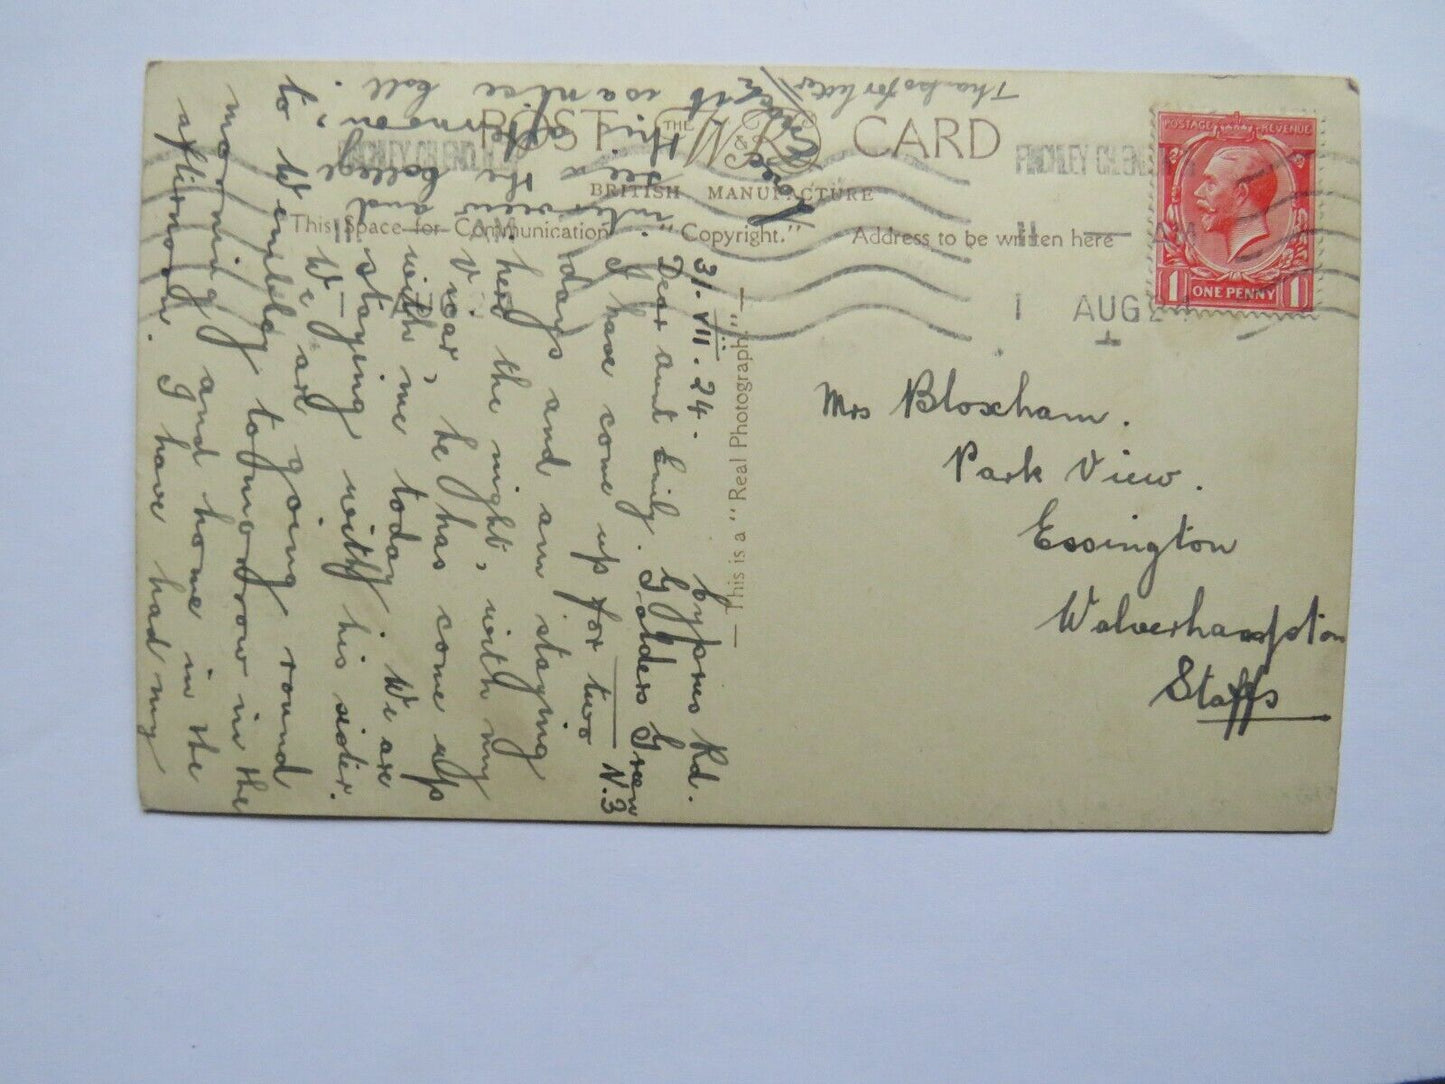 POST CARD
THE
W & K
BRITISH MANUFACTURE
This Space for Communication
"Copyright."
Address to be written here
— This is a "Real Photograph." —
FINCHLEY CH. END. N.3
11 — AM
1 AUG 24
FINCHLEY CH. END. N.3
11 — AM
POSTAGE REVENUE
1 ONE PENNY 1
Mrs Bloxham.
Park View.
Essington
Wolverhampton
Staffs
Cyprus Rd.
31. VII. 24.
Golders Green
N.3
Dear aunt Emily.
I have come up for two
days and am staying
here the night, with my
Vicar, he has come up
with me today. We are
staying with his sister.
We are going round
to Wembley tomorrow in the
morning and home in the
afternoon. I have had my
interview
and
see the College
this afternoon,
it is a nice
coll.
Thanks for letter